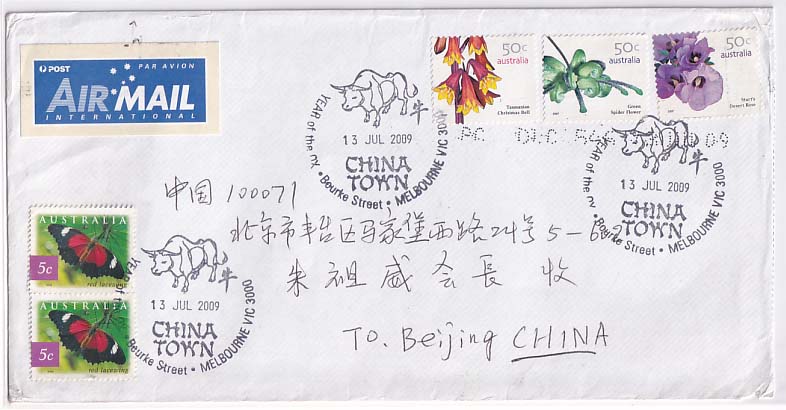 POST PAR AVION
AIR MAIL
INTERNATIONAL
50c
australia
Tasmanian
Christmas Bell
50c
australia
Green
Spider Flower
50c
australia
Sturt's
Desert Rose
YEAR of the OX • Bourke Street • MELBOURNE VIC 3000
牛
13 JUL 2009
CHINA
TOWN
YEAR of the OX • Bourke Street • MELBOURNE VIC 3000
牛
13 JUL 2009
CHINA
TOWN
中国 100071
北京市丰台区马家堡西路24号5-602
朱祖威会長 收
TO. Beijing CHINA
AUSTRALIA
5c
red lacewing
AUSTRALIA
5c
red lacewing
YEAR of the
牛
13 JUL 2009
CHINA
TOWN
Bourke Street • MELBOURNE VIC 3000